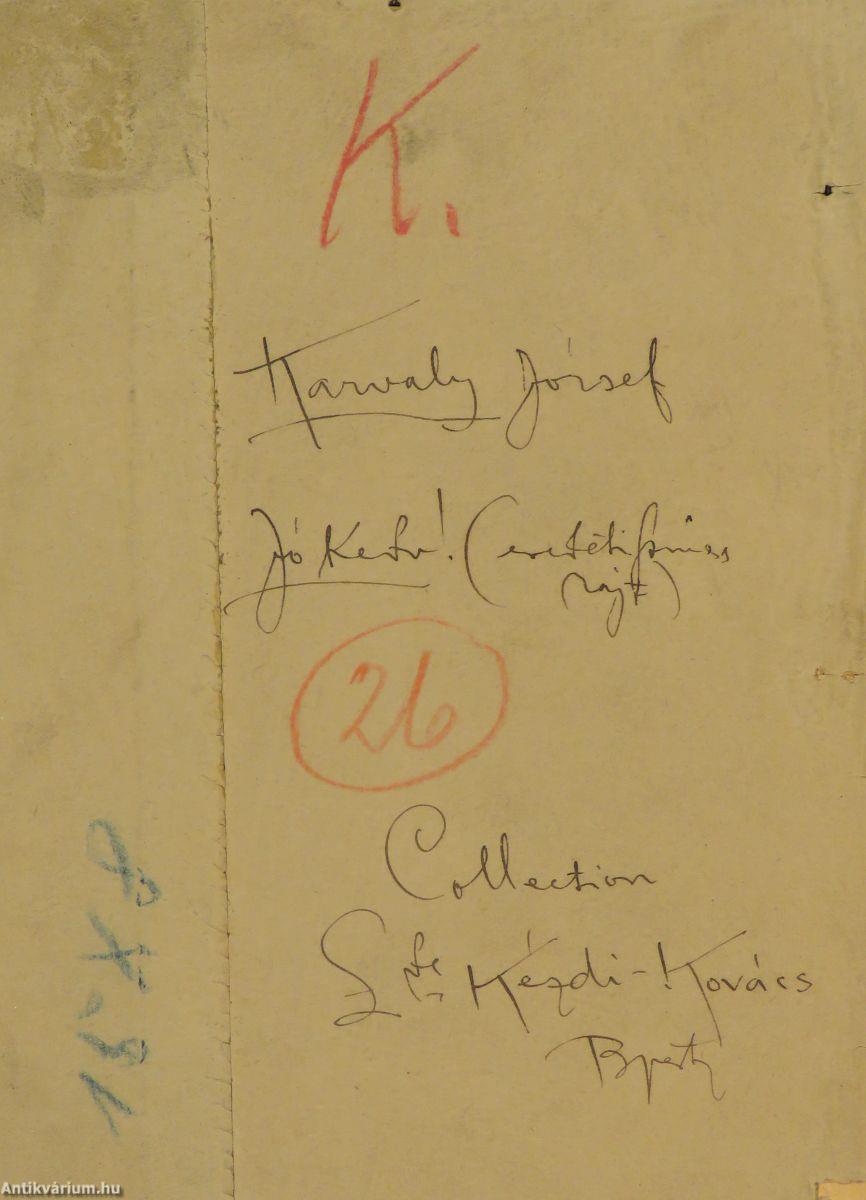 K.
Karvaly József
Jó Kedv! (eredeti
rajz)
26
Collection
Kézdi-Kovács
Bpest
15 X 8
Antikvárium.hu